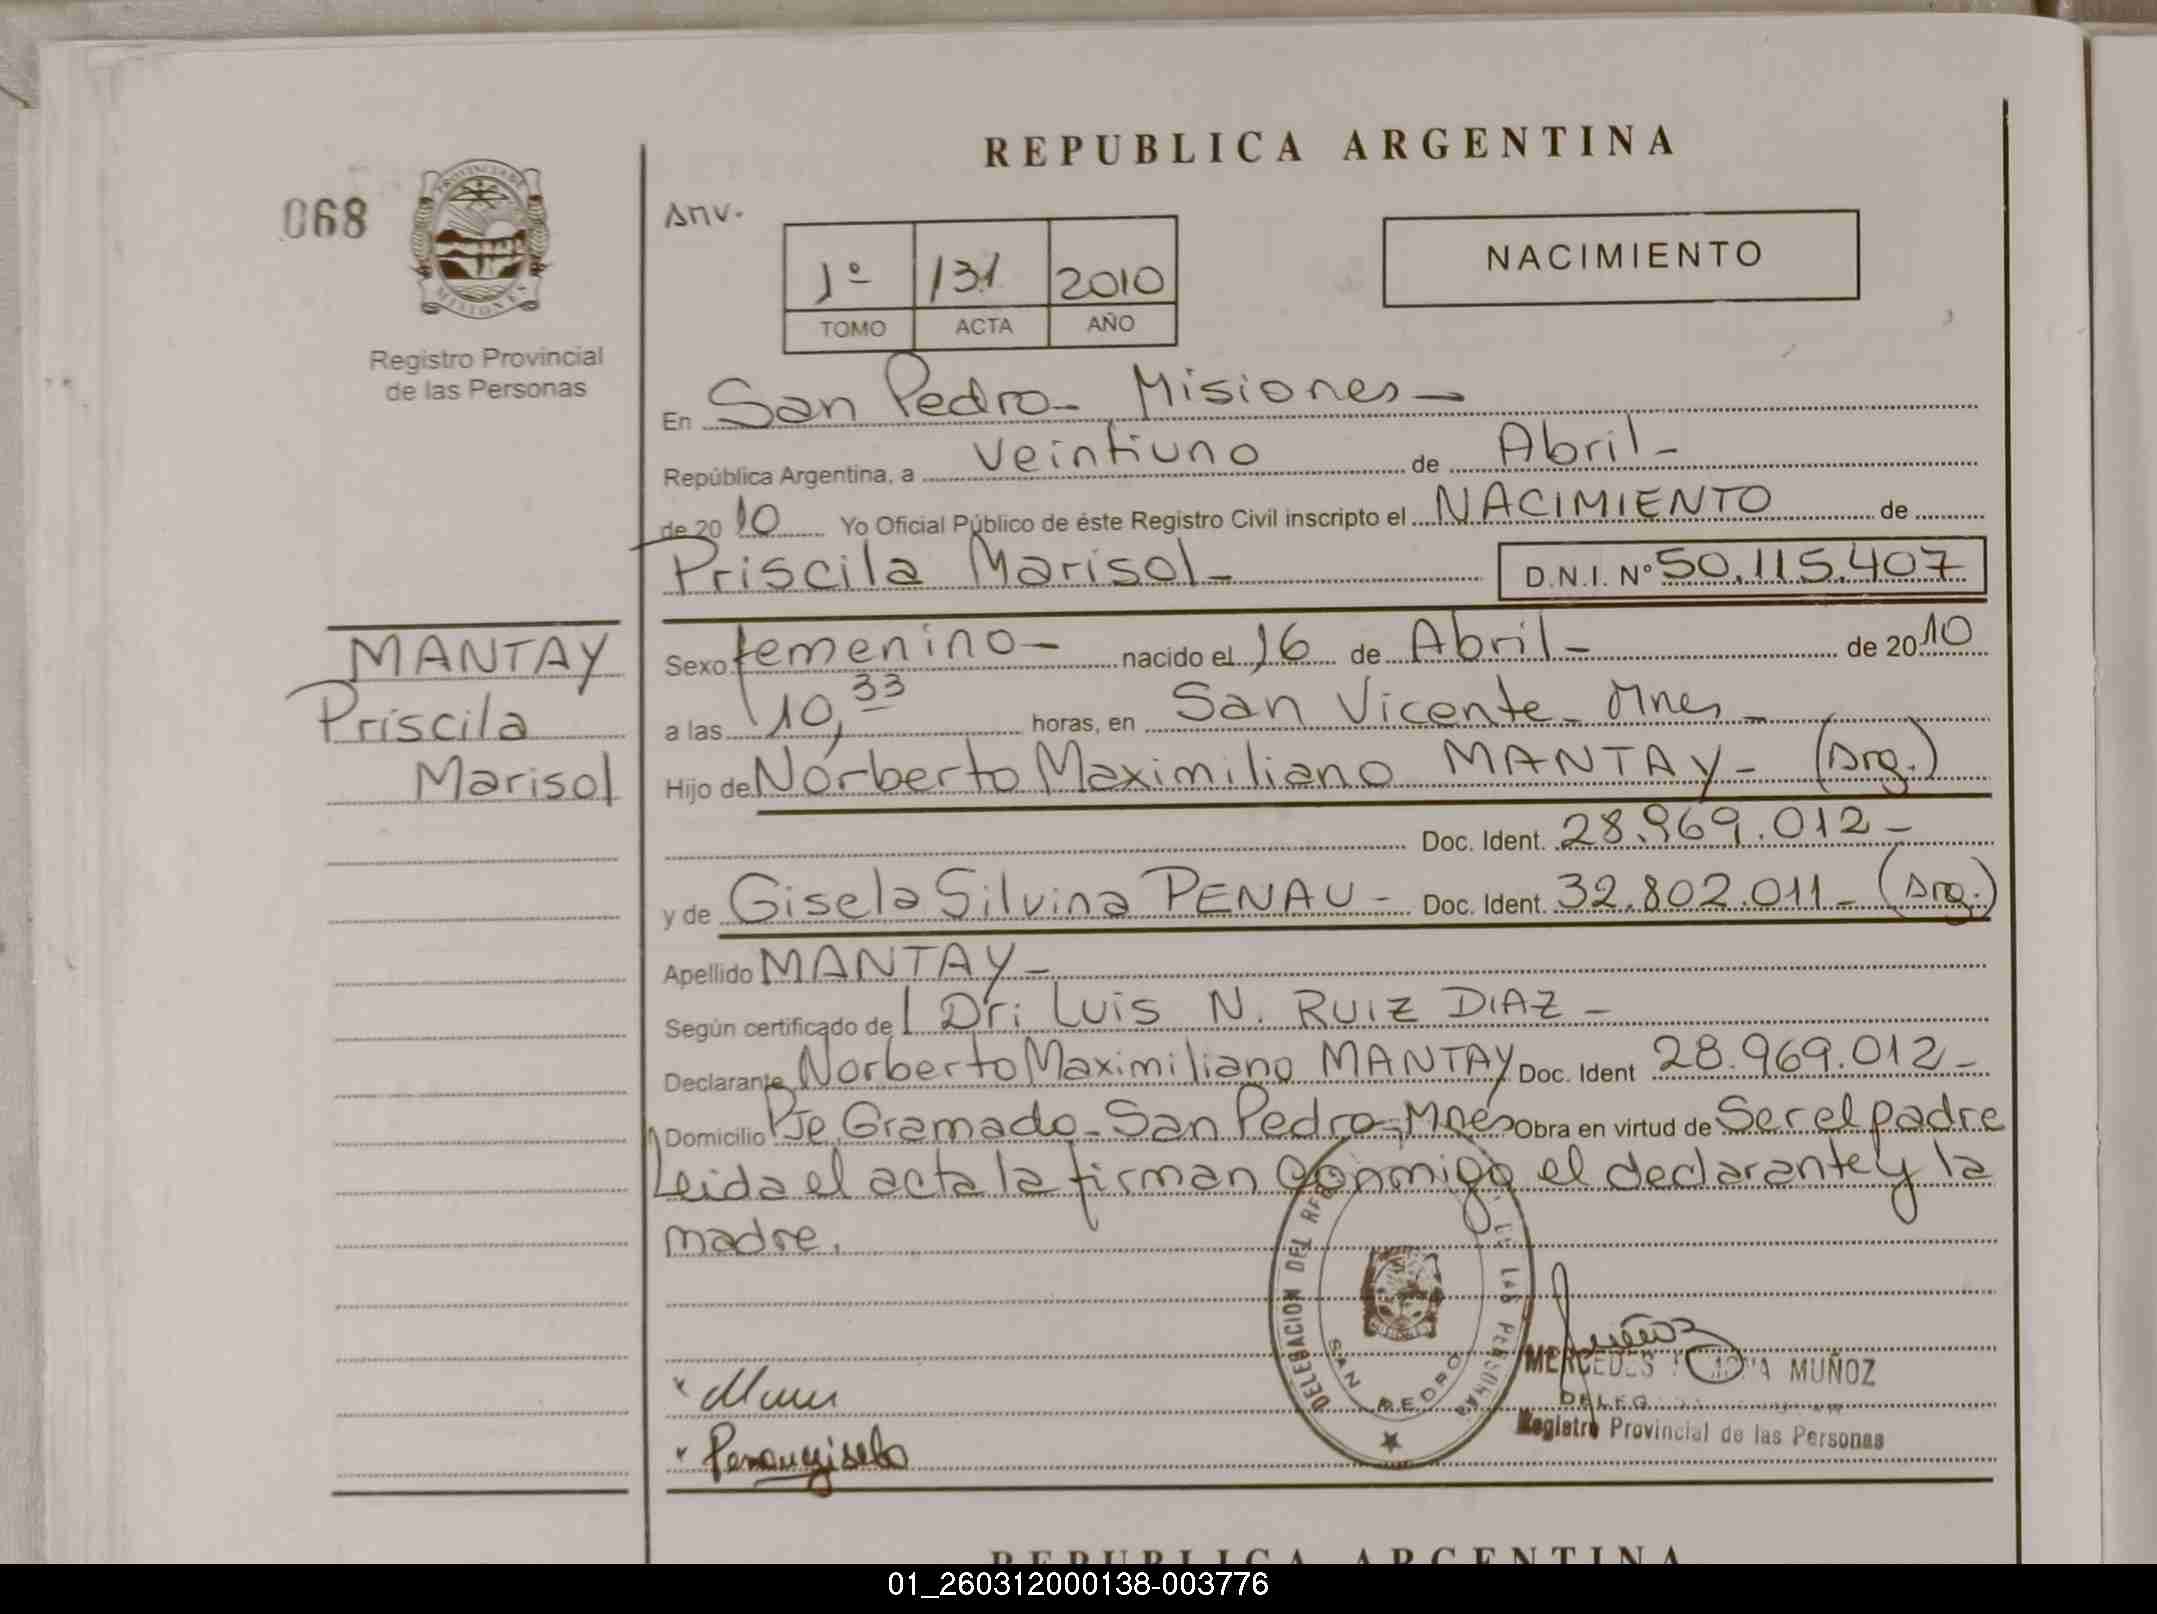 REPUBLICA ARGENTINA
068
PROVINCIA DE
MISIONES
Registro Provincial
de las Personas
1º 131 2010
TOMO ACTA AÑO
NACIMIENTO
En San Pedro - Misiones -
República Argentina, a veintiuno de Abril -
de 2010 Yo Oficial Público de éste Registro Civil inscripto el NACIMIENTO de
Priscila Marisol - D.N.I. Nº 50.115.407
MANTAY
Priscila
Marisol
Sexo femenino - nacido el 16 de Abril - de 2010
a las 10,33 horas, en San Vicente - Mnes -
Hijo de Norberto Maximiliano MANTAY - (Arg.)
Doc. Ident. 28.969.012 -
y de Gisela Silvina PENAU - Doc. Ident. 32.802.011 - (Arg.)
Apellido MANTAY -
Según certificado del Dr: Luis N. RUIZ DIAZ -
Declarante Norberto Maximiliano MANTAY Doc. Ident 28.969.012 -
Domicilio Pje Gramado - San Pedro - Mnes Obra en virtud de Ser el padre
Leida el acta la firman conmigo el declarante y la
madre.
DELEGACION DEL LAS PERSONAS
SAN PEDRO
Muñoz
MERCEDES MUÑOZ
Registro Provincial de las Personas
Penau gisela
REPUBLICA ARGENTINA
01_260312000138-003776